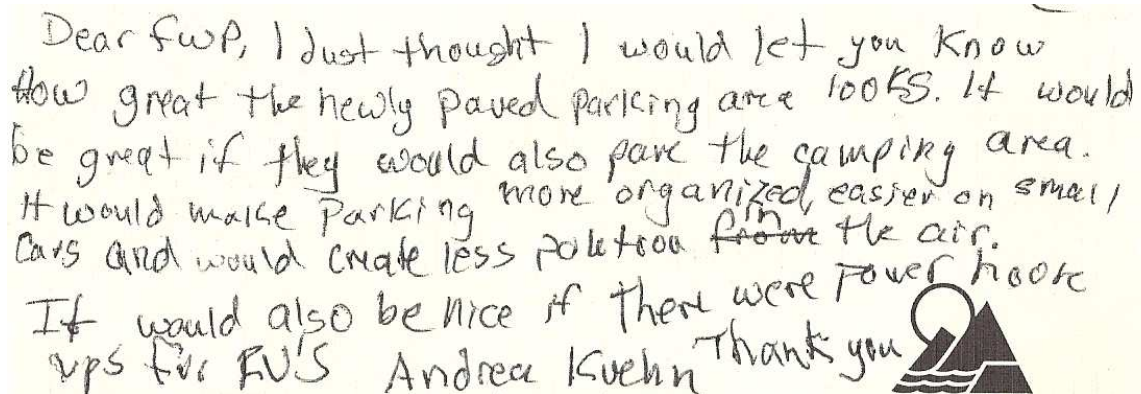 Dear FWP, I Just thought I would let you Know
How great the newly paved parking area looks. It would
be great if they would also pave the camping area.
It would make Parking more organized, easier on small
Cars and would create less polution from in the air.
If would also be nice if there were Power hoore
ups for RV'S Andrea Kuehn Thank you